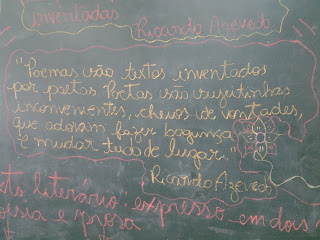 inventadas
Ricardo Azevedo
"Poemas são textos inventados
por poetas Poetas são sujeitinhos
inconvenientes, cheios de vontades,
que adoram fazer bagunça
e mudar tudo de lugar."
Ricardo Azevedo
literário: expresso em dois
poesia e prosa